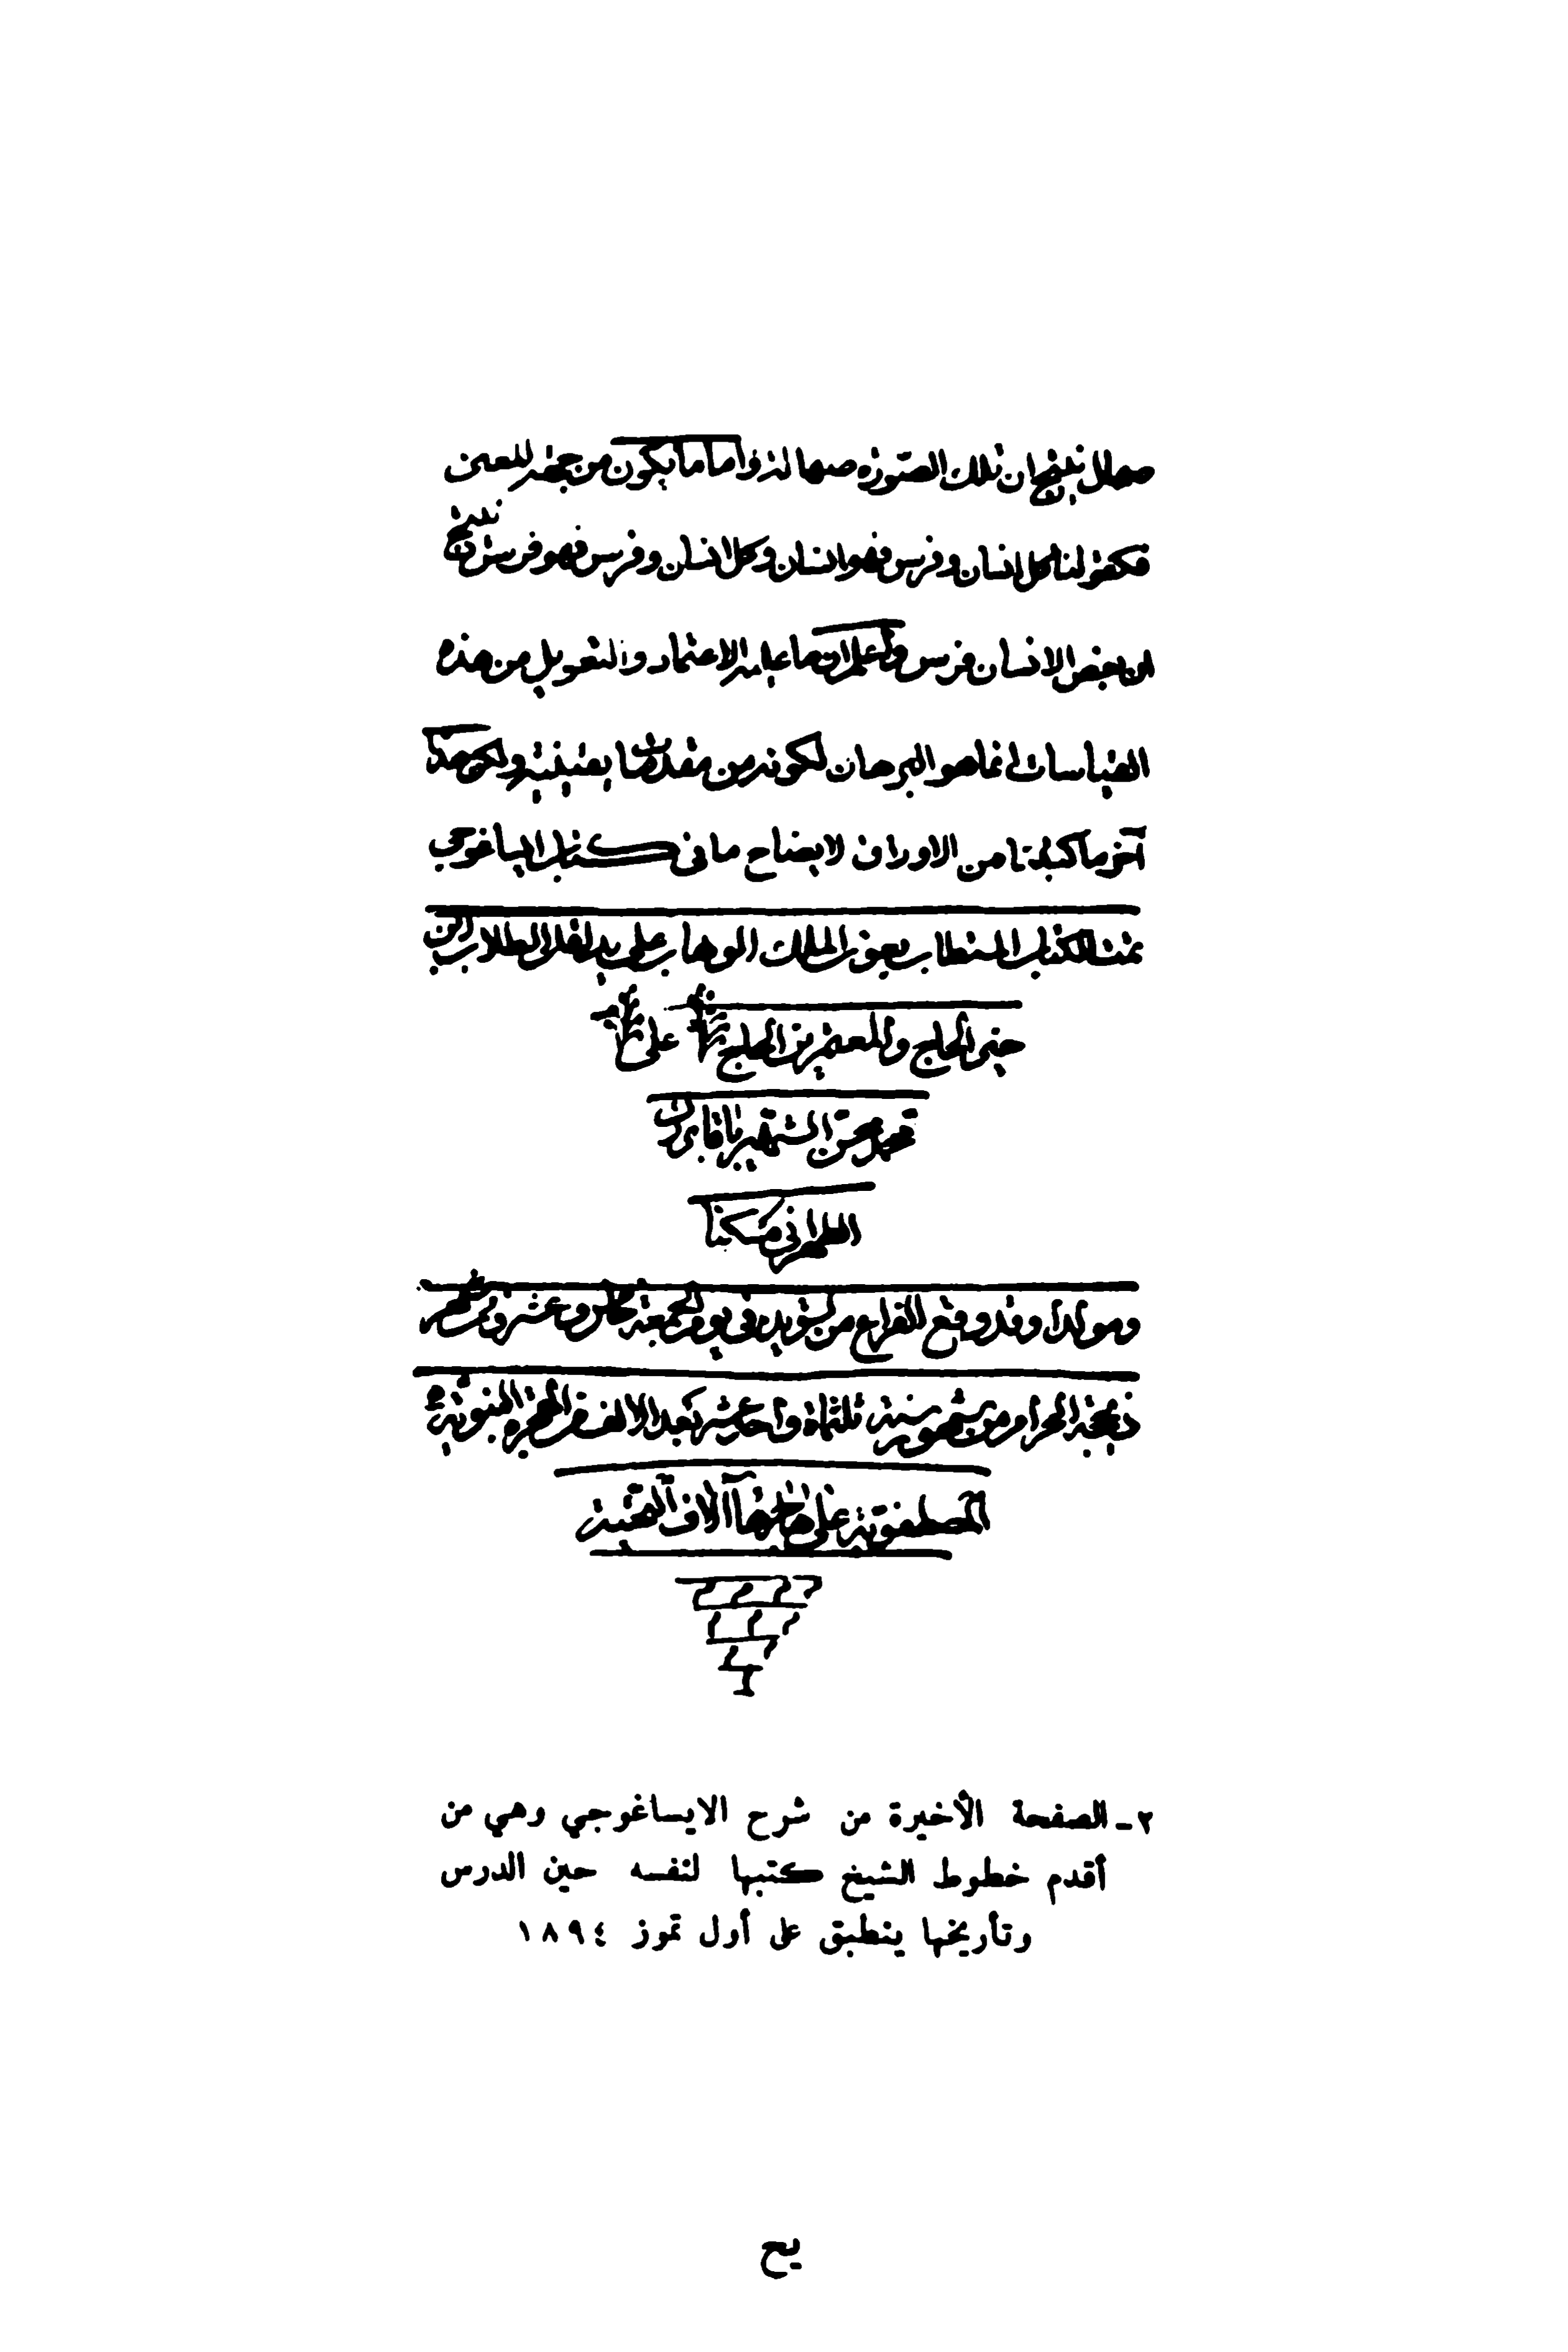 صهال ينتج ان تلك الصورة صهالة واما ما يكون من جهة المعنى
فكقولنا كل انسان وفرس فهو انسان وكل انسان وفرس فهو فرس ينتج
ان بعض الانسان فرس واعلم ان ما عليه الاعتماد والتعويل من هذه
القياسات انما هو البرهان لكونه من مقدمات يقينية وليكن هذا
آخر ما كتبنا من الاوراق لايضاح ما في كتاب ايساغوجي
تمت الكتاب المستطاب بعون الملك الوهاب على يد اقل الطلاب ابن
الحاج والمعتمر بن الحاج على
محمد محسن الشهير باقا بزرك
الطهراني مسكنا
ومولدا وقد وقع الفراغ من تسويده في يوم الجمعة وعشرون شهر
ذيحجة الحرام من شهور سنة ثلثمائة واحد عشر بعد الالف من الهجرة النبوية
المصطفوية على هاجرها آلاف التحية
٢ - الصفحة الأخيرة من شرح الايساغوجي وهي من
أقدم خطوط الشيخ كتبها لنفسه حين الدرس
وتأريخها ينطبق على أول تموز ١٨٩٤
يح